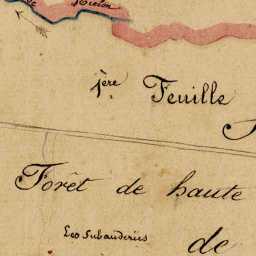 de Melon
1ère Feuille
Forêt de haute
Les Subauderies
de